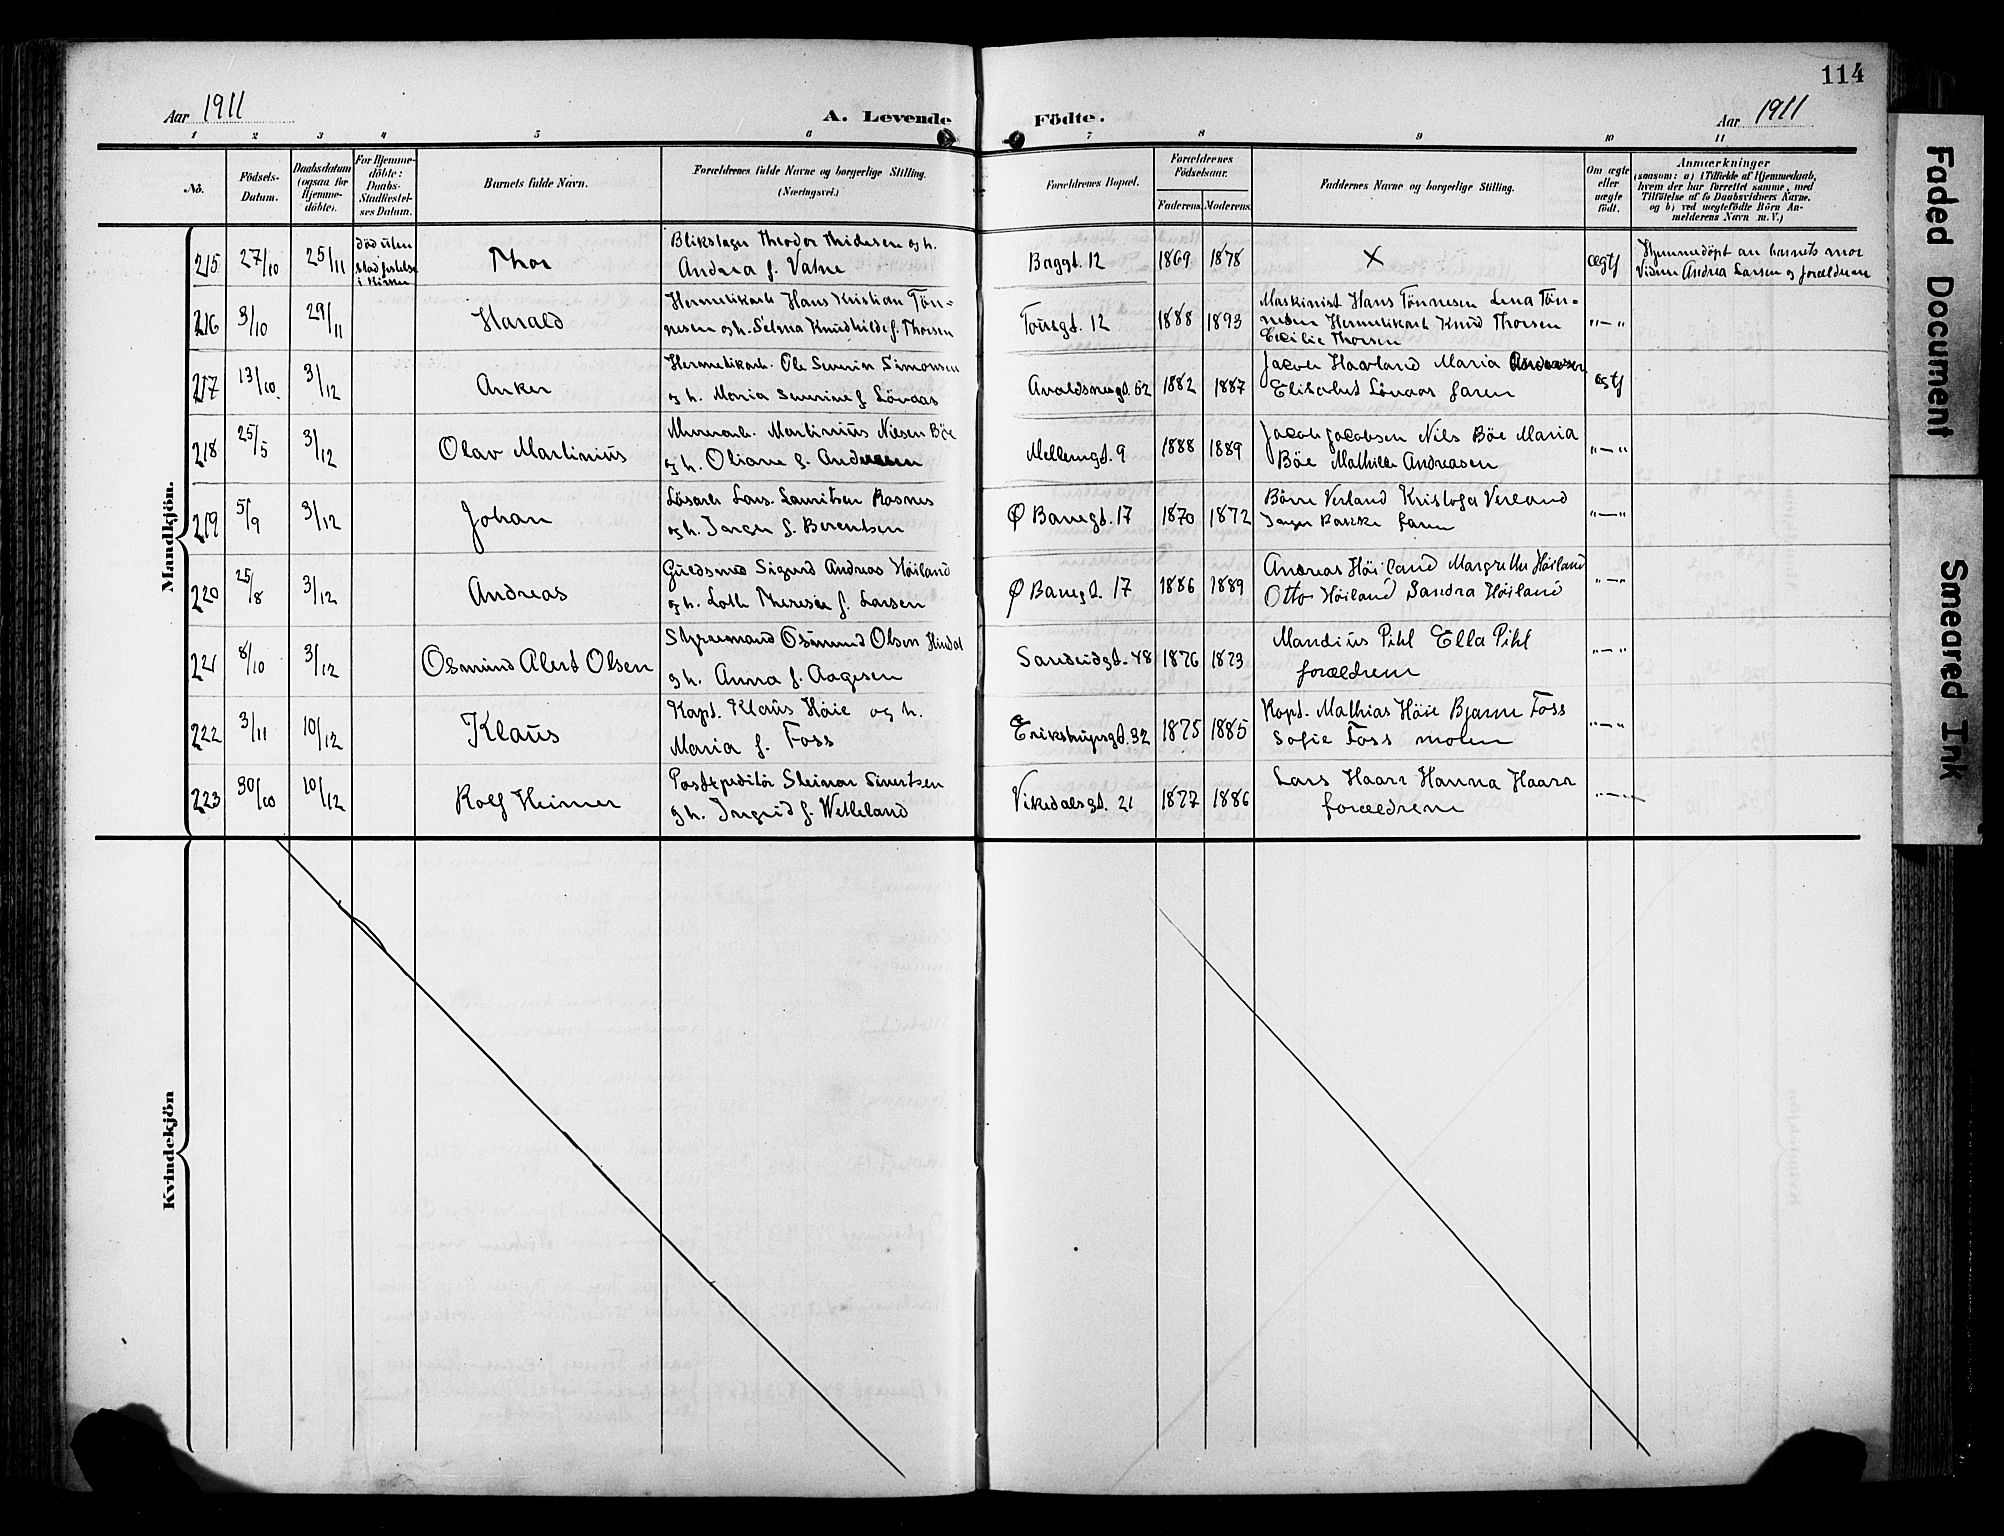 114
Aar 1911
A. Levende
Födte.
Aar 1911
1 2 3 4 5 6 7 8 9 10 11
No.
Födsels-
Datum.
Daabsdatum
(ogsaa for
Hjemme-
döbte).
For Hjemme-
döbte:
Daabs-
Stadfæstel-
ses Datum.
Barnets fulde Navn.
Forældrenes fulde Navne og borgerlige Stilling.
(Næringsvei.)
Forældrenes Bopæl.
Forældrenes
Födselsaar.
Faderens. Moderens.
Faddernes Navne og borgerlige Stilling.
Om ægte
eller
uægte
födt.
Anmærkninger
(saasom: a) i Tilfælde af Hjemmedaab,
hvem der har forrettet samme, med
Tilföielse af to Daabsvidners Navne.
og b) ved uægtefödte Börn An-
melderens Navn m. V.)
Mandkjön.
215 27/10 25/11 död uten stadfestelse i kirken Thor Blikslager Theodor Thidesen og h. Andrea f. Vatne
Baggt. 12 1869 1878 X ægtf Hjemmedöpt av barnets mor
Vidner Andrea Larsen og forældrene
216 3/10 29/11 Harald Hermetikarb Hans Kristian Tön-
nesen og h. Selma Knudhilde f. Thorsen
Toresgt. 12 1888 1893 Maskinist Hans Tönnesen Lena Tön-
nesen Hermetikarb Knud Thorsen
Cecilie Thorsen "—"
217 13/10. 3/12 Anker Hermetikarb. Ole Severin Simonsen
og h. Maria Severine f. Lönaas
Avaldsnesgt. 62 1882 1887 Jacob Haavland Maria Andreasen
Elisabet Lönaas faren ægtf
218 25/5 3/12 Olav Martinius Murerarb. Martinius Nilsen Böe
og h. Oliane f. Andersen
Mellemgt. 9 1888 1889 Jacob Jacobsen Nils Böe Maria
Böe Mathilde Andreasen "—"
219 5/9 3/12 Johan Lösarb Lars Lauritsen Rosnes
og h. Inger f. Berentsen
Ø Banegt. 17 1870 1872 Börre Verland Kristofa Verland
Inger faren "—"
220 25/8 3/12 Andreas Guldsmed Sigurd Andreas Höiland
og h. Lotte Therese f. Larsen
Ø Banegt. 17 1886 1889 Andreas Höiland Margrethe Höiland
Otto Höiland Sandra Höiland "—"
221 8/10 3/12 Osmund Alert Olsen Styrmand Osmund Olsen
og h. Anna f. Aagesen
Sandeidgt. 48 1876 1873 Mandius Pihl Ella Pihl
forældrene "—"
222 3/11 10/12 Klaus Kapt. Klaus Höie og h.
Maria f. Foss
Erikstrupsgt. 32 1875 1885 Kapt. Mathias Höie Bjarne Foss
Sofie Foss moren "—"
223 30/10 10/12 Rolf Heimer Postexpeditör Steinar Sivertsen
og h. Ingrid f. Wetteland
Vikedalsgt. 21 1877 1886 Lars Haarr Hanna Haarr
forældrene "—"
Kvindekjön
Faded Document
Smeared Ink